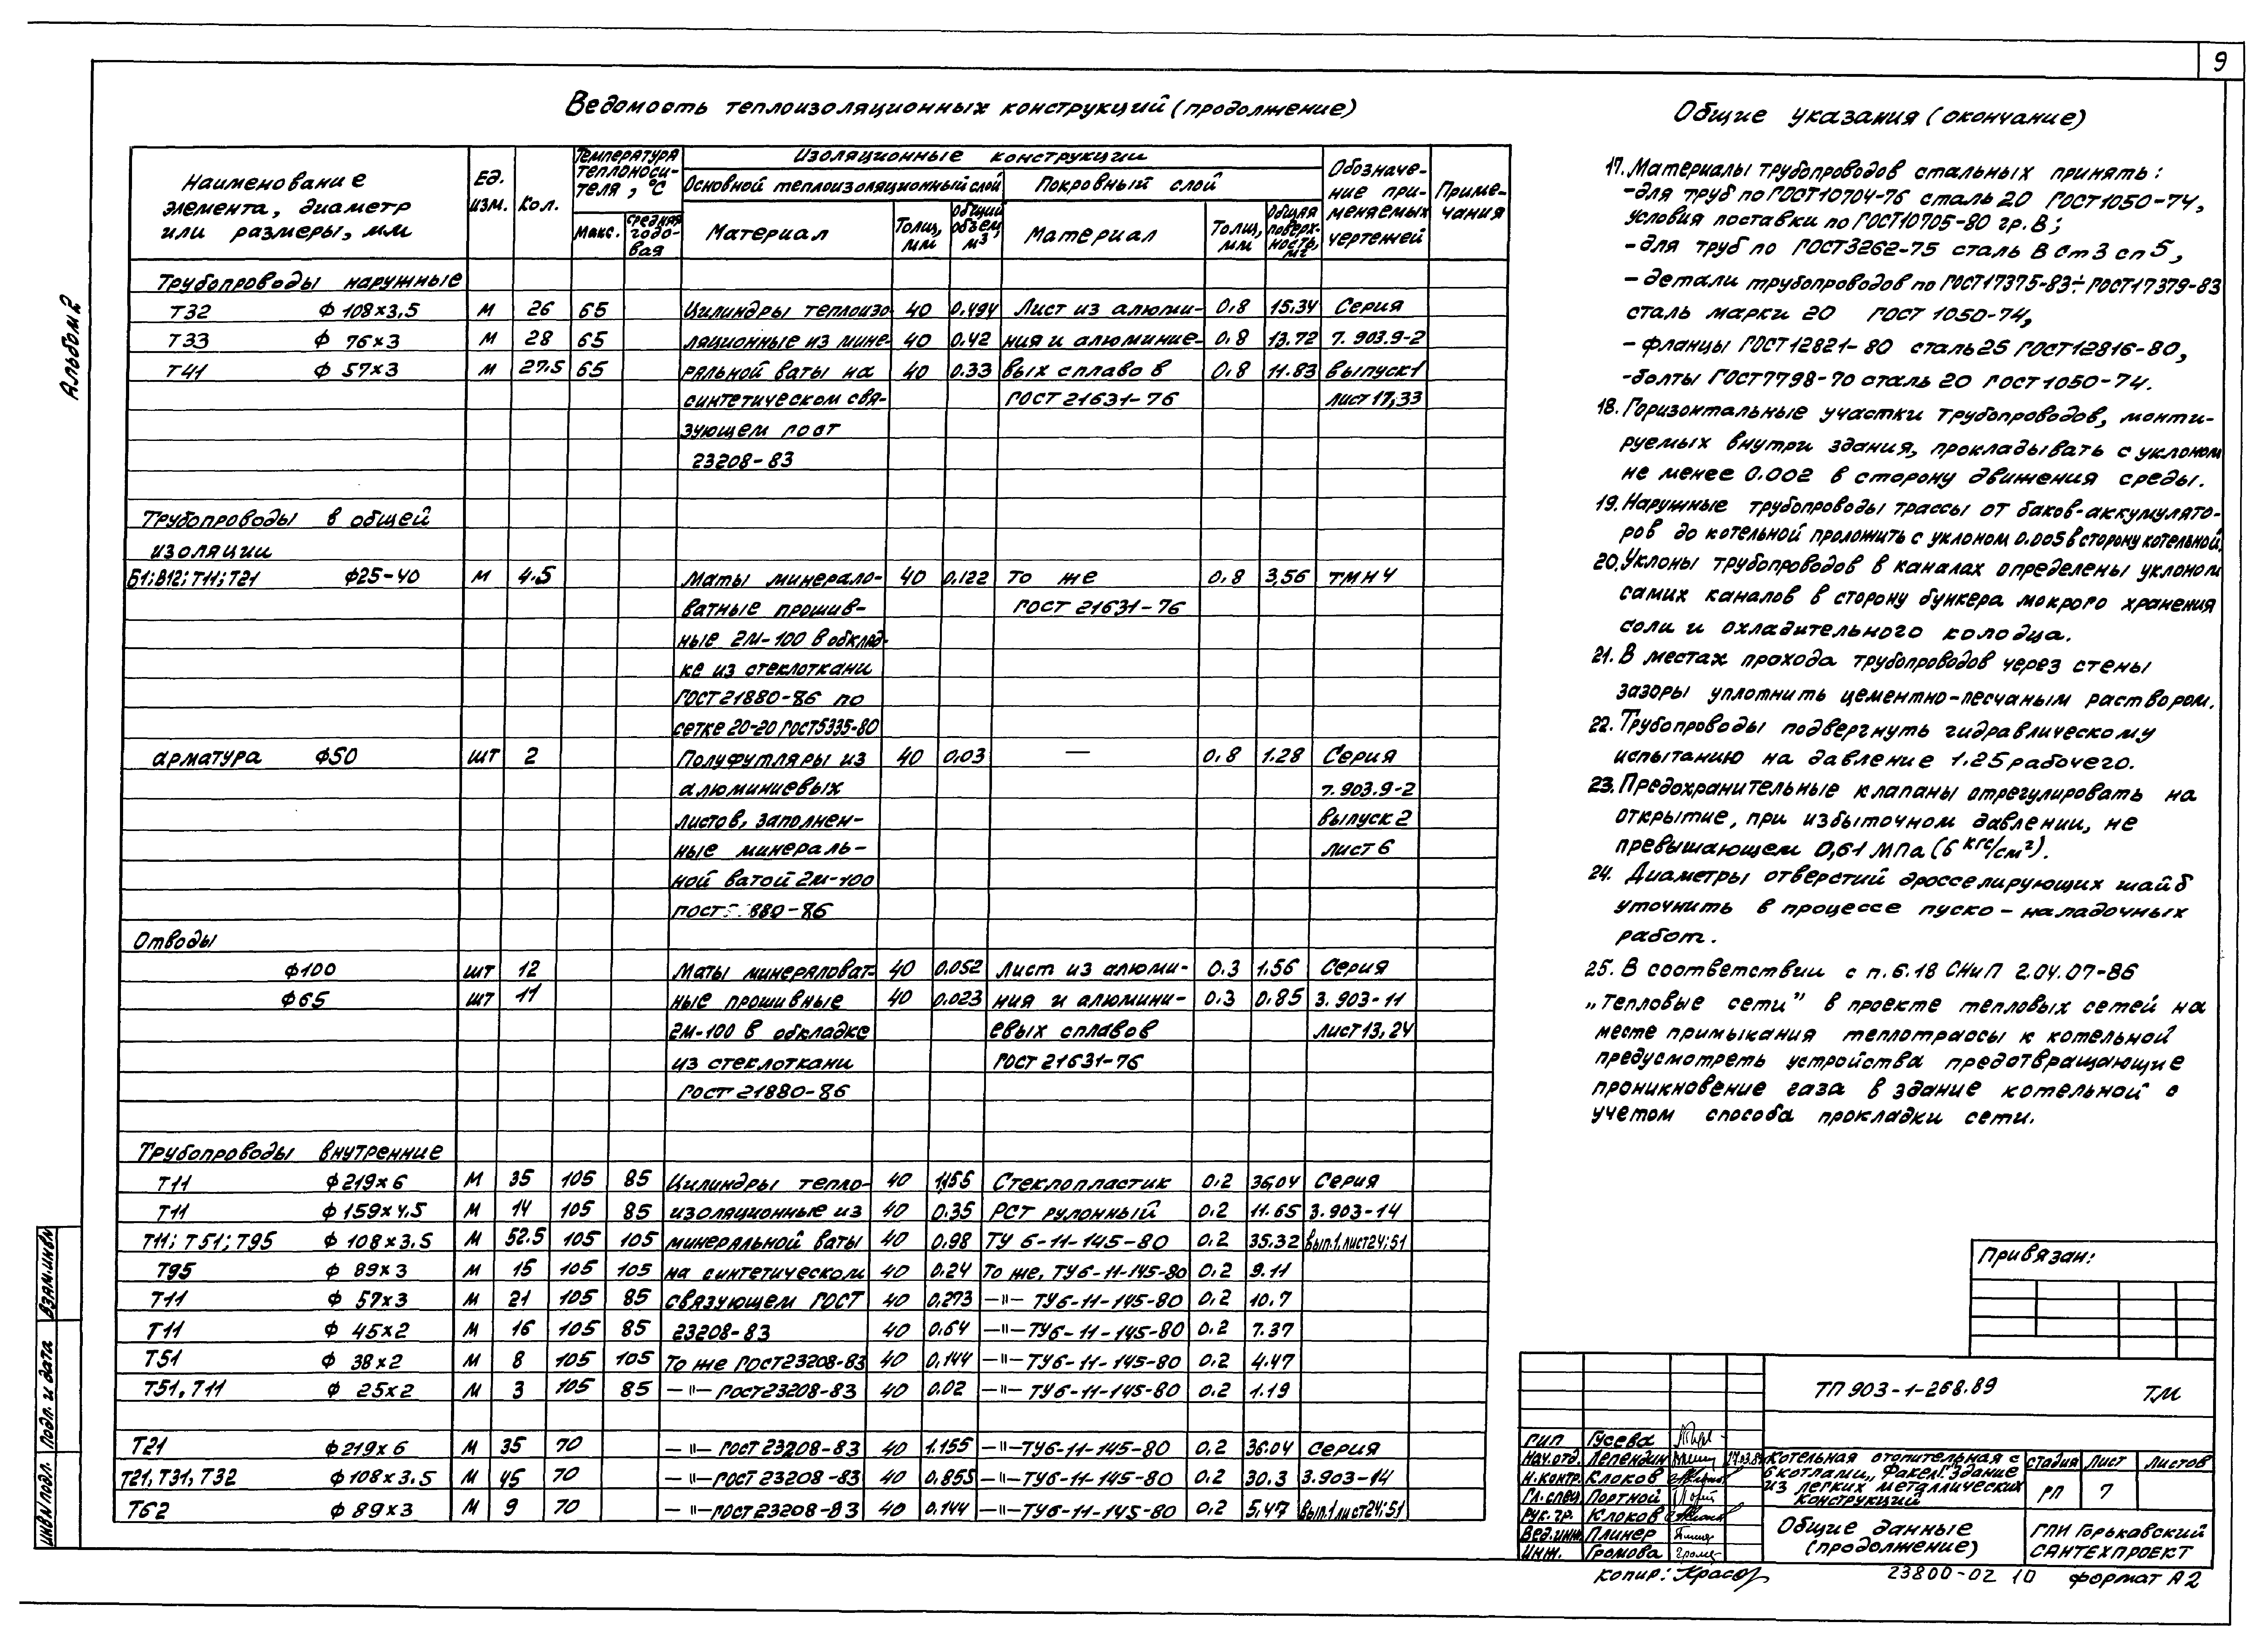 9
Ведомость теплоизоляционных конструкций (продолжение)
Наименование элемента, диаметр или размеры, мм
Ед. изм.
Кол.
Температура теплоносителя, °С
Макс.
среднегодовая
Изоляционные конструкции
Основной теплоизоляционный слой
Покровный слой
Материал
Толщ, мм
Общий объем, м³
Материал
Толщ, мм
Общая поверхность, м²
Обозначение применяемых чертежей
Примечания
Трубопроводы наружные
Т32 ф 108×3,5 м 26 65 Цилиндры теплоизо- 40 0.494 Лист из алюми- 0.8 15.34 Серия
Т33 ф 76×3 м 28 65 ляционные из мине- 40 0.42 ния и алюминие- 0.8 13.72 7.903.9-2
Т41 ф 57×3 м 27.5 65 ральной ваты на 40 0.33 вых сплавов 0.8 11.83 выпуск1
синтетическом свя- ГОСТ 21631-76 лист 17,33
зующем гост
23208-83
Трубопроводы в общей
изоляции
Б1; В12; Т11; Т21 ф25-40 м 4.5 Маты минерало- 40 0.122 То же 0.8 3,56 ТМН 4
ватные прошив- ГОСТ 21631-76
ные 2М-100 в обклад-
ке из стеклоткани
ГОСТ 21880-86 по
сетке 20-20 ГОСТ5335-80
арматура ф50 шт 2 Полуфутляры из 40 0.03 — 0.8 1.28 Серия
алюминиевых 7.903.9-2
листов, заполнен- выпуск 2
ные минераль- лист 6
ной ватой 2М-100
880-86
Отводы
ф100 шт 12 Маты минераловат- 40 0.052 Лист из алюми- 0.3 1.56 Серия
ф65 шт 11 ные прошивные 40 0.023 ния и алюмини- 0.3 0.85 3.903-11
2М-100 в обкладке евых сплавов лист 13, 24
из стеклоткани ГОСТ 21631-76
ГОСТ 21880-86
Трубопроводы внутренние
Т11 ф219×6 м 35 105 85 Цилиндры тепло- 40 1,155 Стеклопластик 0.2 36,04 Серия
Т11 ф 159×4.5 м 14 105 85 изоляционные из 40 0.35 РСТ рулонный 0.2 11.65 3.903-14
Т11; Т51; Т95 ф 108×3.5 м 52.5 105 105 минеральной ваты 40 0.98 ТУ 6-11-145-80 0.2 35.32 вып.1, лист24; 51
Т95 ф 89×3 м 15 105 105 на синтетическом 40 0.24 То же, ТУ6-11-145-80 0.2 9.11
Т11 ф 57×3 м 21 105 85 связующем ГОСТ 40 0.273 —"— ТУ6-11-145-80 0.2 10.7
Т11 ф 45×2 м 16 105 85 23208-83 40 0.64 —"— ТУ6-11-145-80 0.2 7.37
Т51 ф 38×2 м 8 105 105 То же ГОСТ23208-83 40 0.144 —"— ТУ6-11-145-80 0.2 4.47
Т51, Т11 ф 25×2 м 3 105 85 —"— Гост23208-83 40 0.02 —"— ТУ6-11-145-80 0.2 1.19
Т21 ф219×6 м 35 70 —"— ГОСТ 23208-83 40 1.155 —"—ТУ6-11-145-80 0.2 36.04 Серия
Т21, Т31, Т32 ф108×3.5 м 45 70 —"—ГОСТ 23208-83 40 0.855 —"—ТУ6-11-145-80 0.2 30.3 3.903-14
Т62 ф 89×3 м 9 70 —"—гост 23208-83 40 0.144 —"—ТУ6-11-145-80 0.2 5.47 вып.1 лист24; 51
Общие указания (окончание)
17. Материалы трубопроводов стальных принять:
-для труб по ГОСТ10704-76 сталь 20 ГОСТ1050-74,
условия поставки по ГОСТ10705-80 гр. В;
-для труб по ГОСТ3262-75 сталь В Ст 3 сп 5,
- детали трубопроводов по ГОСТ17375-83÷ГОСТ17379-83
сталь марки 20 ГОСТ 1050-74,
- фланцы ГОСТ12821-80 сталь25 ГОСТ12816-80,
-болты ГОСТ7798-70 сталь 20 ГОСТ1050-74.
18. Горизонтальные участки трубопроводов, монти-
руемых внутри здания, прокладывать с уклоном
не менее 0.002 в сторону движения среды.
19. Наружные трубопроводы трассы от баков-аккумулято-
ров до котельной проложить с уклоном 0.005 в сторону котельной.
20. Уклоны трубопроводов в каналах определены уклоном
самих каналов в сторону бункера мокрого хранения
соли и охладительного колодца.
21. В местах прохода трубопроводов через стены
зазоры уплотнить цементно-песчаным раствором.
22. Трубопроводы подвергнуть гидравлическому
испытанию на давление 1.25 рабочего.
23. Предохранительные клапаны отрегулировать на
открытие, при избыточном давлении, не
превышающем 0,61 МПа (6 кгс/см²).
24. Диаметры отверстий дросселирующих шайб
уточнить в процессе пуско-наладочных
работ.
25. В соответствии с п. 6.18 СНиП 2.04.07-86
„Тепловые сети" в проекте тепловых сетей на
месте примыкания теплотрассы к котельной
предусмотреть устройства предотвращающие
проникновение газа в здание котельной с
учетом способа прокладки сети.
Привязан:
ТП 903-1-268.89 ТМ
ГИП Гусева
Нач.отд. Лепендин
Н.контр. Клоков
Гл. спец. Портной
Рук. гр. Клоков
Вед.инж. Плинер
Инж. Громова
Котельная отопительная с
6 котлами „Факел". Здание
из легких металлических
конструкций
стадия Лист Листов
РП 7
Общие данные
(продолжение)
ГПИ Горьковский
САНТЕХПРОЕКТ
Копир:
23800-02 10 формат А2
Альбом 2
Взам.инв№
Подп. и дата
Инв№подл.